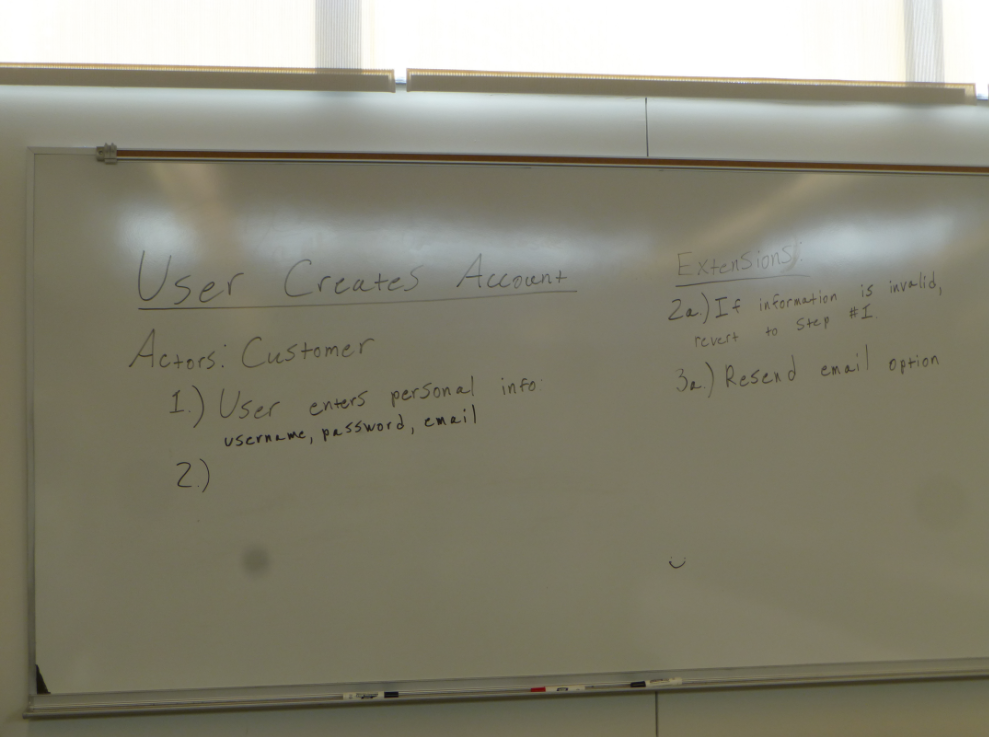 User Creates Account
Actors: Customer
1.) User enters personal info:
username, password, email
2.)
Extensions:
2a.) If information is invalid,
revert to step #1.
3a.) Resend email option